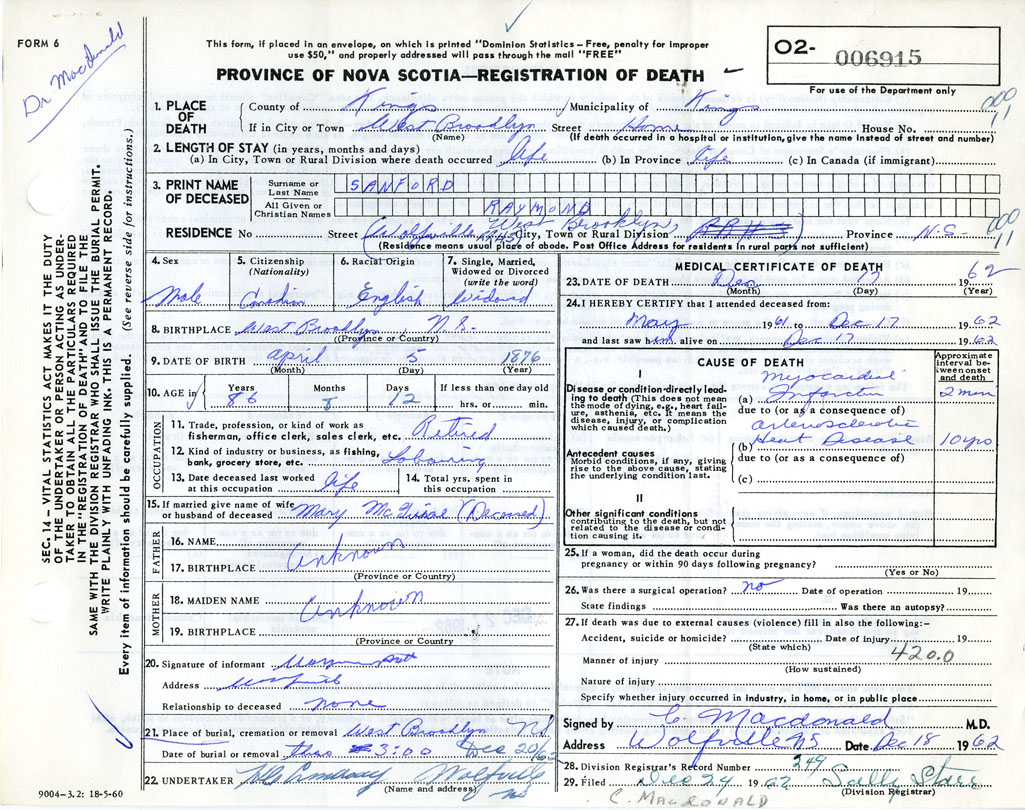 FORM 6
Dr MacDonald
This form, if placed in an envelope, on which is printed "Dominion Statistics—Free, penalty for improper
use $50," and properly addressed will pass through the mail "FREE"
PROVINCE OF NOVA SCOTIA—REGISTRATION OF DEATH
O2- 006915
For use of the Department only
SEC. 14 - VITAL STATISTICS ACT MAKES IT THE DUTY
OF THE UNDERTAKER OR PERSON ACTING AS UNDER-
TAKER TO OBTAIN ALL THE PARTICULARS REQUIRED
IN THE "REGISTRATION OF DEATH" AND TO FILE THE
SAME WITH THE DIVISION REGISTRAR WHO SHALL ISSUE THE BURIAL PERMIT.
WRITE PLAINLY WITH UNFADING INK. THIS IS A PERMANENT RECORD.
Every item of information should be carefully supplied. (See reverse side for instructions.)
1. PLACE OF DEATH
County of Kings Municipality of Kings
If in City or Town West Brooklyn Street Home House No.
(Name) (If death occurred in a hospital or institution, give the name instead of street and number)
2. LENGTH OF STAY (in years, months and days)
(a) In City, Town or Rural Division where death occurred life (b) In Province life (c) In Canada (if immigrant)
3. PRINT NAME OF DECEASED
Surname or Last Name SANFORD
All Given or Christian Names RAYMOND
West Brooklyn,
RESIDENCE No. Street (Wolfville City, Town or Rural Division RR#3) Province N.S
(Residence means usual place of abode. Post Office Address for residents in rural parts not sufficient)
4. Sex Male
5. Citizenship (Nationality) Canadian
6. Racial Origin English
7. Single, Married, Widowed or Divorced (write the word) Widowed
8. BIRTHPLACE West Brooklyn, N.S.
(Province or Country)
9. DATE OF BIRTH April 5 1876
(Month) (Day) (Year)
10. AGE in Years 86 Months 8 Days 12 If less than one day old hrs. or min.
OCCUPATION
11. Trade, profession, or kind of work as
fisherman, office clerk, sales clerk, etc. Retired
12. Kind of industry or business, as fishing,
bank, grocery store, etc. Laboring
13. Date deceased last worked
at this occupation life
14. Total yrs. spent in
this occupation
15. If married give name of wife
or husband of deceased Mary (Deceased)
FATHER
16. NAME
Unknown
17. BIRTHPLACE
(Province or Country)
MOTHER
18. MAIDEN NAME Unknown
19. BIRTHPLACE
(Province or Country
20. Signature of informant
Address Wolfville
Relationship to deceased none
21. Place of burial, cremation or removal West Brooklyn NS
Date of burial or removal 3:00 Dec 20/62
22. UNDERTAKER Wolfville
NS
(Name and address)
9004-3.2: 18-5-60
MEDICAL CERTIFICATE OF DEATH
23. DATE OF DEATH Dec 17 62
(Month) (Day) (Year)
24. I HEREBY CERTIFY that I attended deceased from:
May 1961 to Dec 17 1962
and last saw him alive on Dec 17 1962
CAUSE OF DEATH
Approximate interval between onset and death
I
Disease or condition directly lead-
ing to death (This does not mean
the mode of dying, e.g., heart fail-
ure, asthenia, etc. It means the
disease, injury, or complication
which caused death.)
Myocardial
(a) Infarction 2 min
due to (or as a consequence of)
Arteriosclerotic
(b) Heart Disease 10 yrs
due to (or as a consequence of)
(c)
Antecedent causes
Morbid conditions, if any, giving
rise to the above cause, stating
the underlying condition last.
II
Other significant conditions
contributing to the death, but not
related to the disease or condi-
tion causing it.
25. If a woman, did the death occur during
pregnancy or within 90 days following pregnancy?
(Yes or No)
26. Was there a surgical operation? no Date of operation 19
State findings Was there an autopsy?
27. If death was due to external causes (violence) fill in also the following:-
Accident, suicide or homicide? Date of injury 19
(State which) 420.0
Manner of injury
(How sustained)
Nature of injury
Specify whether injury occurred in industry, in home, or in public place
Signed by C Macdonald M.D.
Address Wolfville NS Date Dec 18 1962
28. Division Registrar's Record Number 249
29. Filed Dec 24 1962 Sally Starr
(Division Registrar)
C. MACDONALD